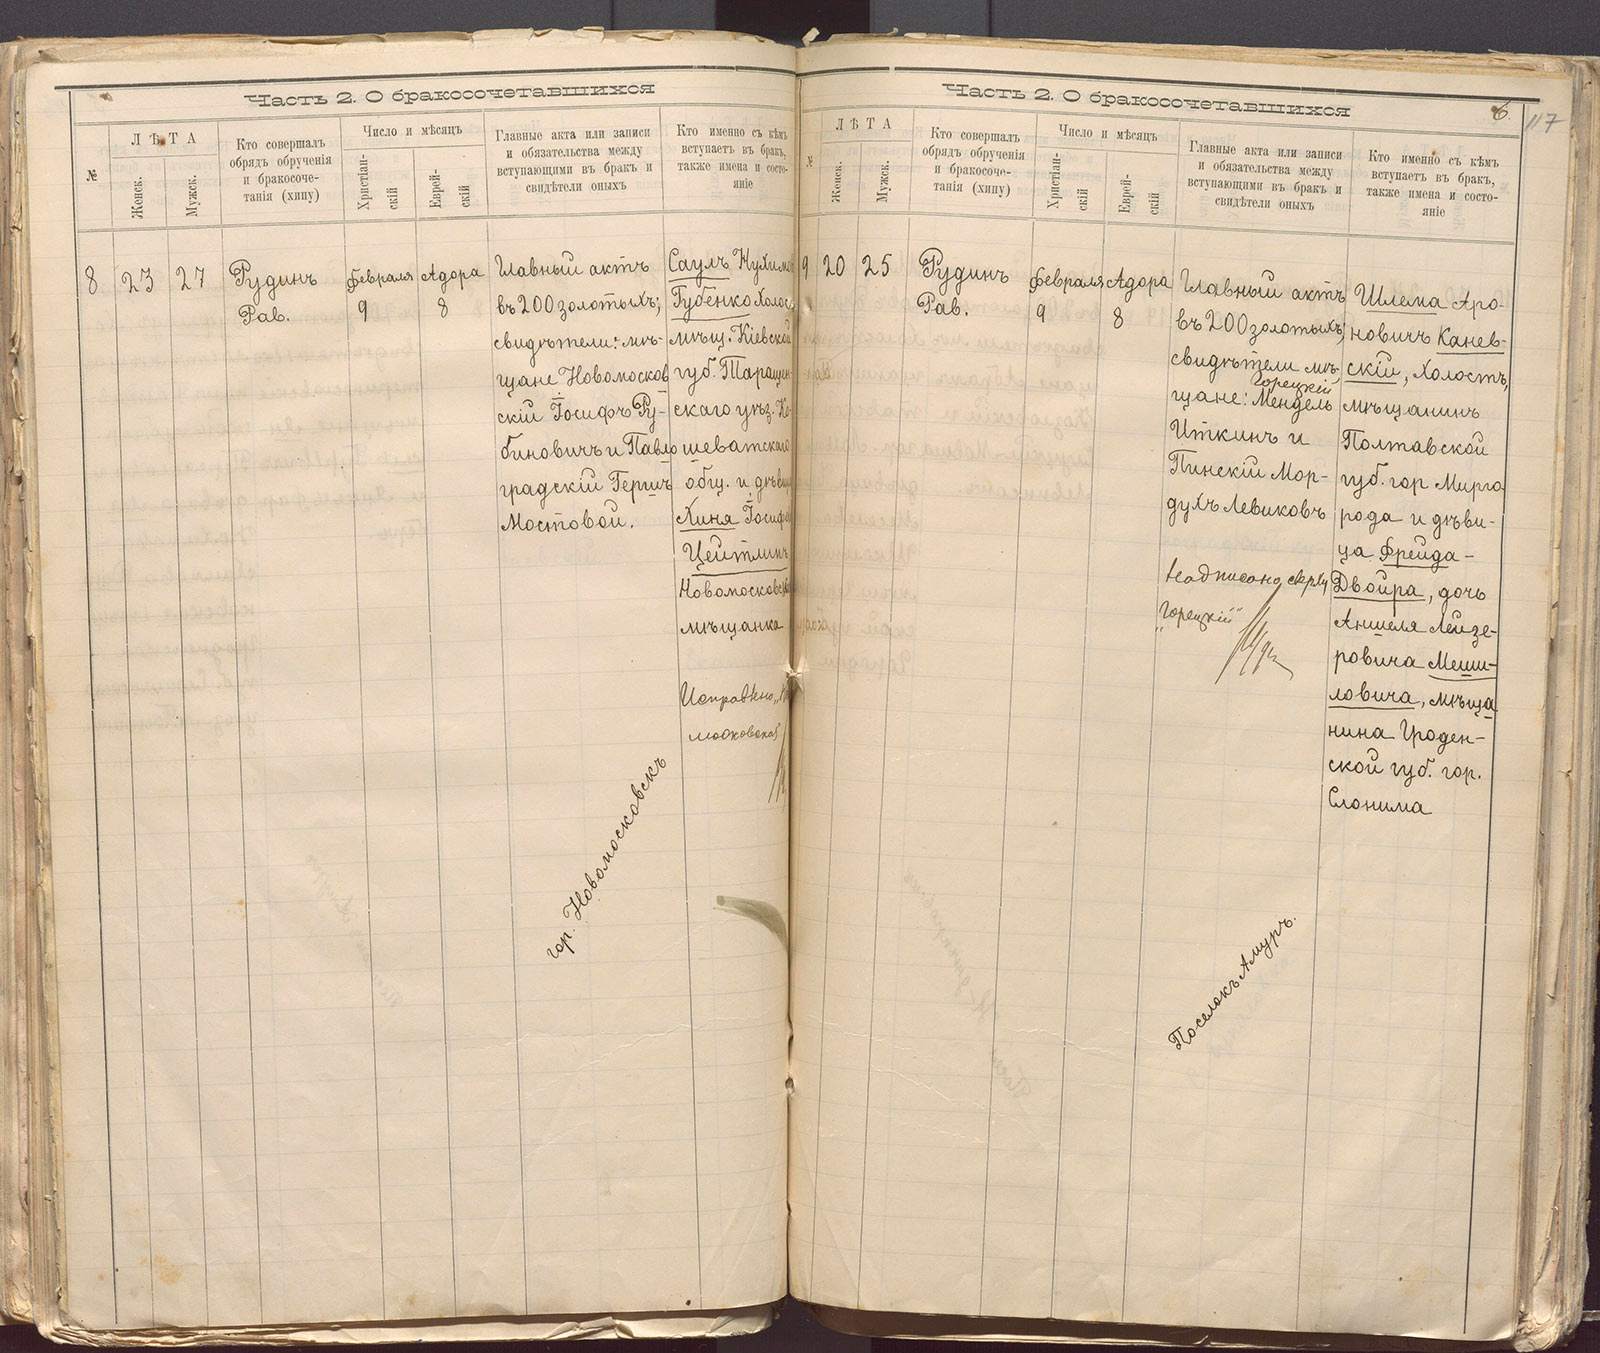 Часть 2. О бракосочетавшихся
№
ЛѢТА
Женск.
Мужск.
Кто совершалъ
обрядъ обрученія
и бракосоче-
танія (хипу)
Число и мѣсяцъ
Христіан-
скій
Еврей-
скій
Главные акта или записи
и обязательства между
вступающими въ бракъ и
свидѣтели оныхъ
Кто именно съ кѣмъ
вступаетъ въ бракъ,
также имена и состо-
яніе
8
23
27
Рудинъ
Рав.
Февраля
9
Адора
8
Главный актъ
въ 200 золотыхъ;
свидѣтели: мѣ-
щане Новомосков
скій Іосифъ Ру-
биновичъ и Павло
градскій Гершъ
Мостовой.
Саулъ Нухимов
Губенко холос
мѣщ. Кіевской
губ. Таращан
скаго уѣз. Ко
шеватскаго
общ. и дѣвица
Хиня Іосифов
Цейтлинъ
Новомосковская
мѣщанка
Исправлено „Но
московская"
гор. Новомосковскъ
Часть 2. О бракосочетавшихся
6.
117
№
ЛѢТА
Женск.
Мужск.
Кто совершалъ
обрядъ обрученія
и бракосоче-
танія (хипу)
Число и мѣсяцъ
Христіан-
скій
Еврей-
скій
Главные акта или записи
и обязательства между
вступающими въ бракъ и
свидѣтели оныхъ
Кто именно съ кѣмъ
вступаетъ въ бракъ,
также имена и состо-
яніе
9
20
25
Рудинъ
Рав.
Февраля
9
Адора
8
Главный актъ
въ 200 золотыхъ;
свидѣтели мѣ-
Горецкій
щане: Мендель
Иткинъ и
Пинскій Мор-
духъ Левиковъ
Надписано сверху
„Горецкій"
Шлема Аро-
новичъ Канев-
скій, холостъ,
мѣщанинъ
Полтавской
губ. гор Мирго
рода и дѣви-
ца Фрейда-
Двойра, дочь
Аншеля Лейзе-
ровича Меши-
ловича, мѣща
нина Гроден-
ской губ. гор.
Слонима
Поселокъ Амуръ.